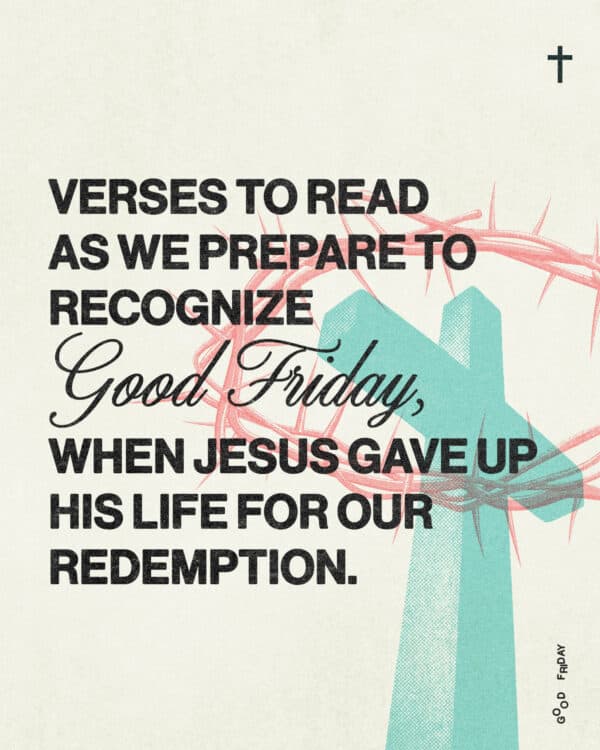 VERSES TO READ
AS WE PREPARE TO
RECOGNIZE
Good Friday,
WHEN JESUS GAVE UP
HIS LIFE FOR OUR
REDEMPTION.
GOOD FRIDAY